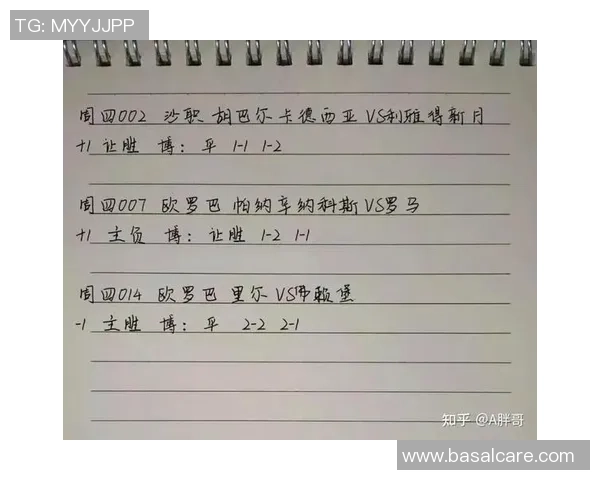 TG: MYYJJPP
周四002 沙职 胡巴尔卡德西亚VS利雅得新月
+1 让胜 博：平 1-1 1-2
周四007 欧罗巴 帕纳辛纳科斯VS罗马
+1 主负 博：让胜 1-2 1-1
周四014 欧罗巴 里尔VS弗赖堡
-1 主胜 博：平 2-2 2-1
知乎 @A胖哥
www.basalcare.com